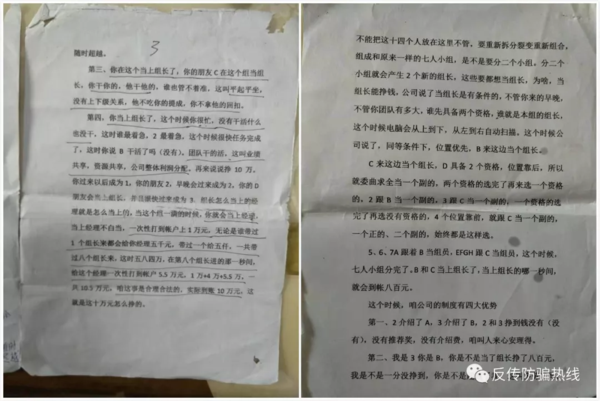 3
随时超越。
第三、你在这个当上组长了，你的朋友C在这个组当组
长，你干你的，他干他的，谁也管不着谁，这叫平起平坐，
没有上下级关系，他不吃你的提成，你不拿他的回扣。
第四、你当上组长了，这个时候你很忙，没有干活什么
也没干，这时谁最着急，2是最着急，这个时候很快任务完成
了，这时你说B干活了吗（没有），团队干的活，这叫业绩
共享，资源共享，公司整体利润分配。再来说说挣10万，
你过来以后成为1，你的朋友2，早晚会过来成为2，你的
理就是怎么当上的，当这个组一满的时候，你就会当上经理，
当上经理不白当，一次性打到帐户上1万元，无论是谁带过
1个组长来都会给你经理五千元，带过一个给五仟，一共带
过八个组长来，这时五八四万，在第八个组长进的那一秒间，
给这个经理一次性打到帐户5.5万元，1万+4万+5.5万，一
共10.5万元，咱这事是合理合法的，实际到账10万元，这
就是这十万元怎么挣的。
不能把这十四个人放在这里不管，要重新拆分裂变重新组合，
组成和原来一样的七人小组，是不是要分二个小组，分二个
小组就会产生2个新的组长，这些要都想当组长，为啥，当
组长能挣钱，公司说了当组长是有条件的，不管你来的早晚，
不管你团队有多大，谁先具备两个资格，谁就是本组的组长，
这个时候电脑会从上到下，从左到右自动扫描，这个时候公
司说了，同等条件下，位置优先，B来这边当个组长。
C来这边当个组长，D具备2个资格，位置靠后，所以
就委曲求全当一个副的，两个资格的选完了再来选一个资格
的，2跟B当一个副的，3跟C当一个副的，一个资格的选
完了再选没有资格的，4个位置靠前，就跟C当一个副的，
一个正的、二个副的，始终都是这样选。
5、6、7A跟着B当组员，EFGH跟C当组员，这个时候，
七人小组分完了，B和C当上组长了，当上组长的哪一秒间，
就会到帐八百元。
这个时候，咱公司的制度有四大优势
第一、2介绍了A，3介绍了B，2和3挣到钱没有（没
有），没有推荐奖，没有介绍费，咱叫人来心安理得。
第二、我是3你是B，你是不是当了组长挣了八百元，
我是不是一分没挣到，你是不是
反传防骗热线